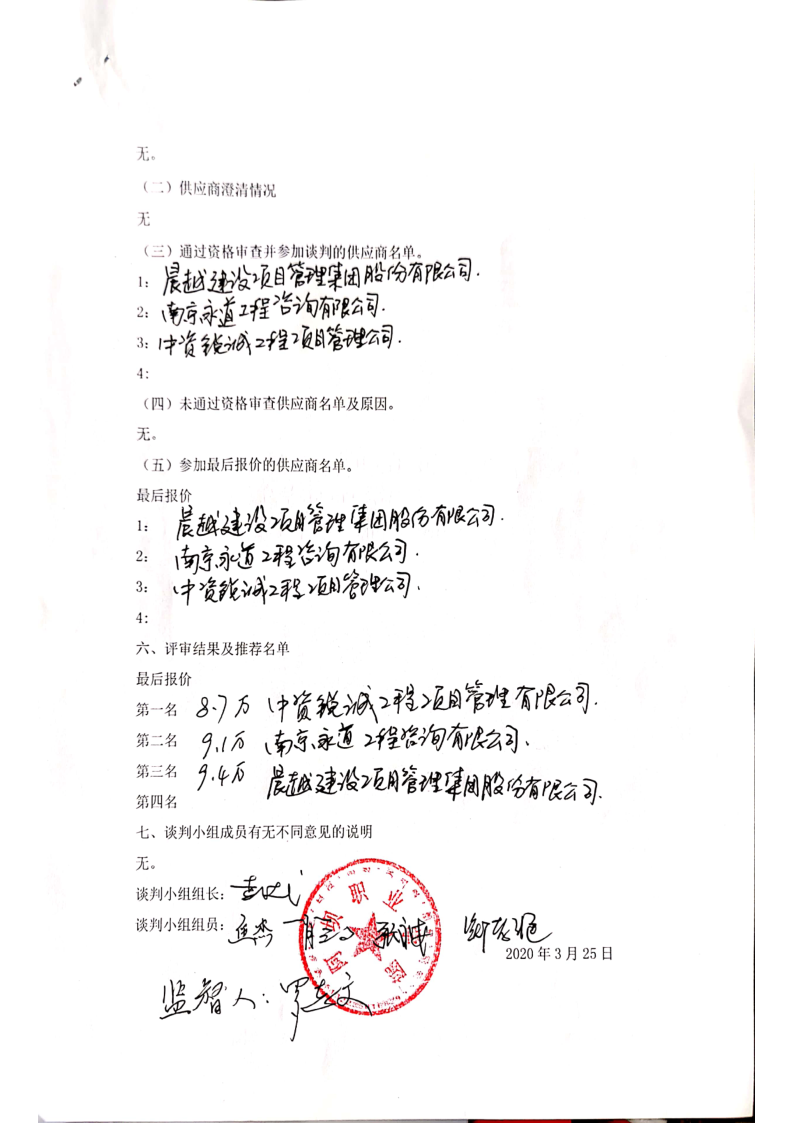 无。
（二）供应商澄清情况
无
（三）通过资格审查并参加谈判的供应商名单。
1: 晨越建设项目管理集团股份有限公司.
2: 南京永道工程咨询有限公司.
3: 中资锐诚工程项目管理公司.
4:
（四）未通过资格审查供应商名单及原因。
无。
（五）参加最后报价的供应商名单。
最后报价
1: 晨越建设项目管理集团股份有限公司.
2: 南京永道工程咨询有限公司.
3: 中资锐诚工程项目管理公司.
4:
六、评审结果及推荐名单
最后报价
第一名 8.7万 中资锐诚工程项目管理有限公司.
第二名 9.1万 南京永道工程咨询有限公司.
第三名 9.4万 晨越建设项目管理集团股份有限公司.
第四名
七、谈判小组成员有无不同意见的说明
无。
谈判小组组长:
谈判小组组员:
职业
2020年3月25日
监督人: 罗